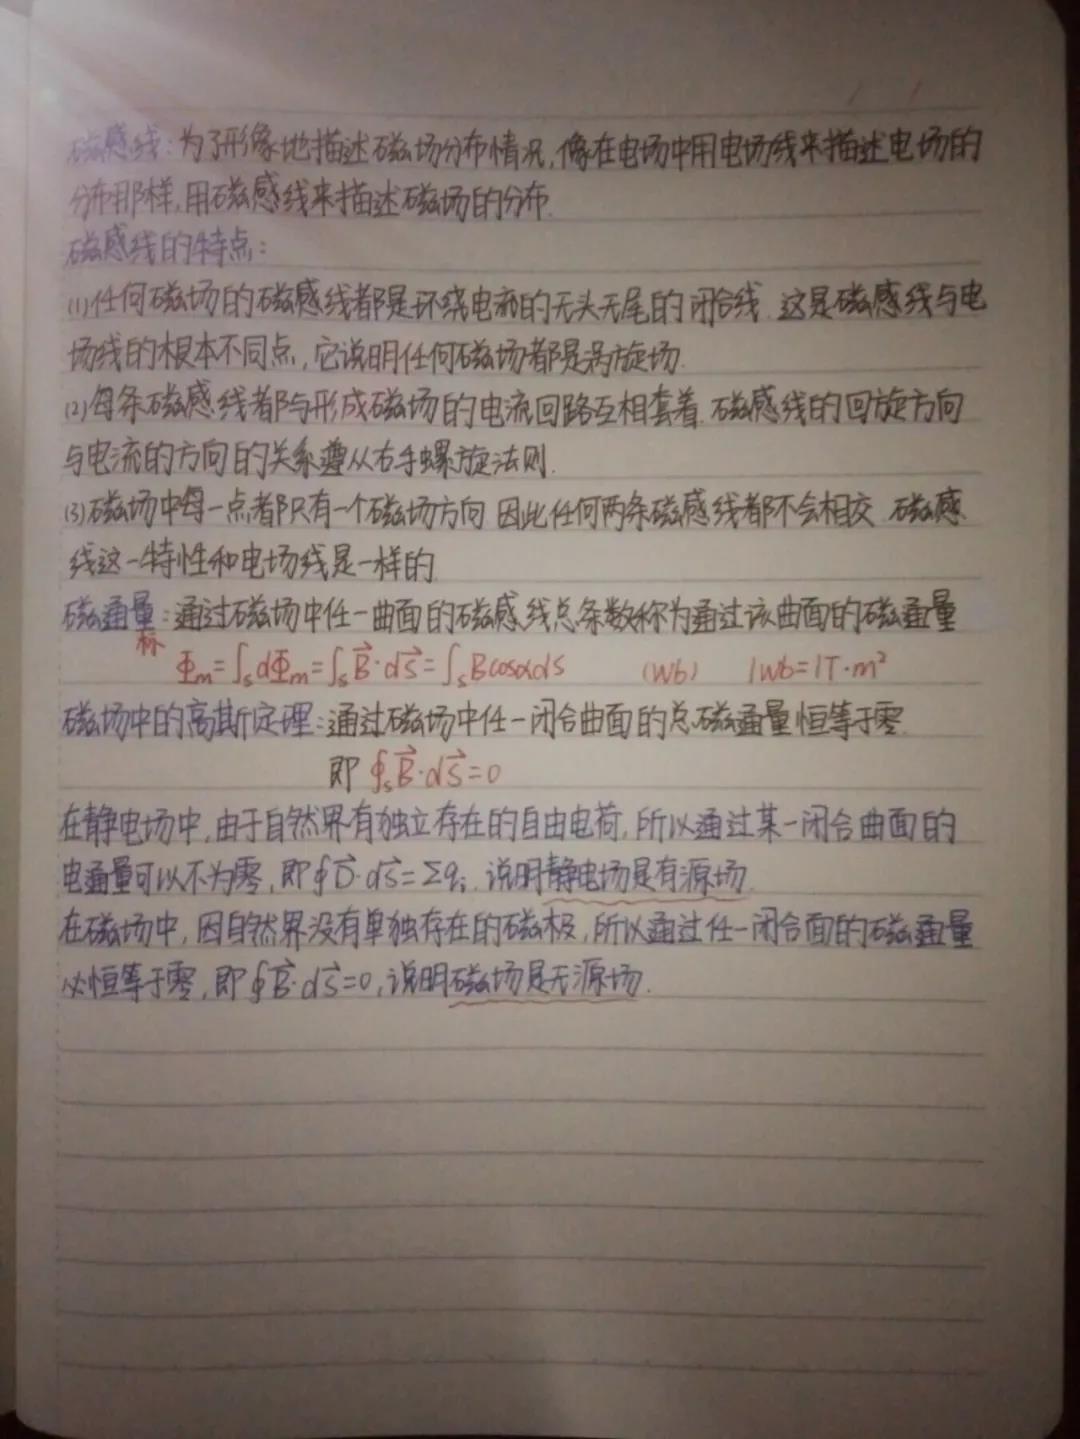 磁感线:为了形像地描述磁场分布情况,像在电场中用电场线来描述电场的
分布那样,用磁感线来描述磁场的分布.
磁感线的特点:
(1)任何磁场的磁感线都是环绕电流的无头无尾的闭合线.这是磁感线与电
场线的根本不同点,它说明任何磁场都是涡旋场.
(2)每条磁感线都与形成磁场的电流回路互相套着.磁感线的回旋方向
与电流的方向的关系遵从右手螺旋法则.
(3)磁场中每一点都只有一个磁场方向 因此任何两条磁感线都不会相交.磁感
线这一特性和电场线是一样的
磁通量:通过磁场中任一曲面的磁感线总条数称为通过该曲面的磁通量
标
Φm=∫s dΦm=∫s B⃗·dS⃗=∫s BcosαdS (Wb) 1Wb=1T·m²
磁场中的高斯定理:通过磁场中任一闭合曲面的总磁通量恒等于零.
即 ∮s B⃗·dS⃗=0
在静电场中,由于自然界有独立存在的自由电荷,所以通过某一闭合曲面的
电通量可以不为零,即∮D⃗·dS⃗=Σqi.说明静电场是有源场.
在磁场中,因自然界没有单独存在的磁极,所以通过任一闭合面的磁通量
必恒等于零,即∮B⃗·dS⃗=0,说明磁场是无源场.